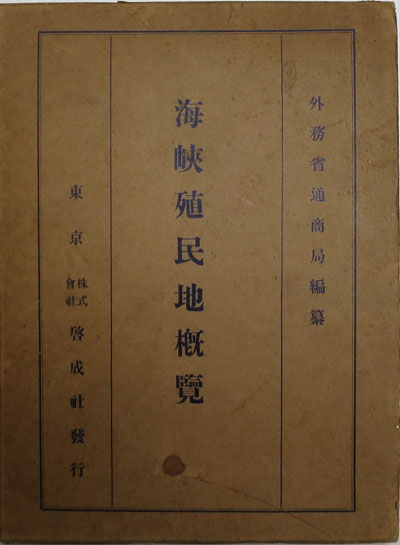 外務省通商局編纂
海峽殖民地槪覽
東京 株式會社 啓成社發行